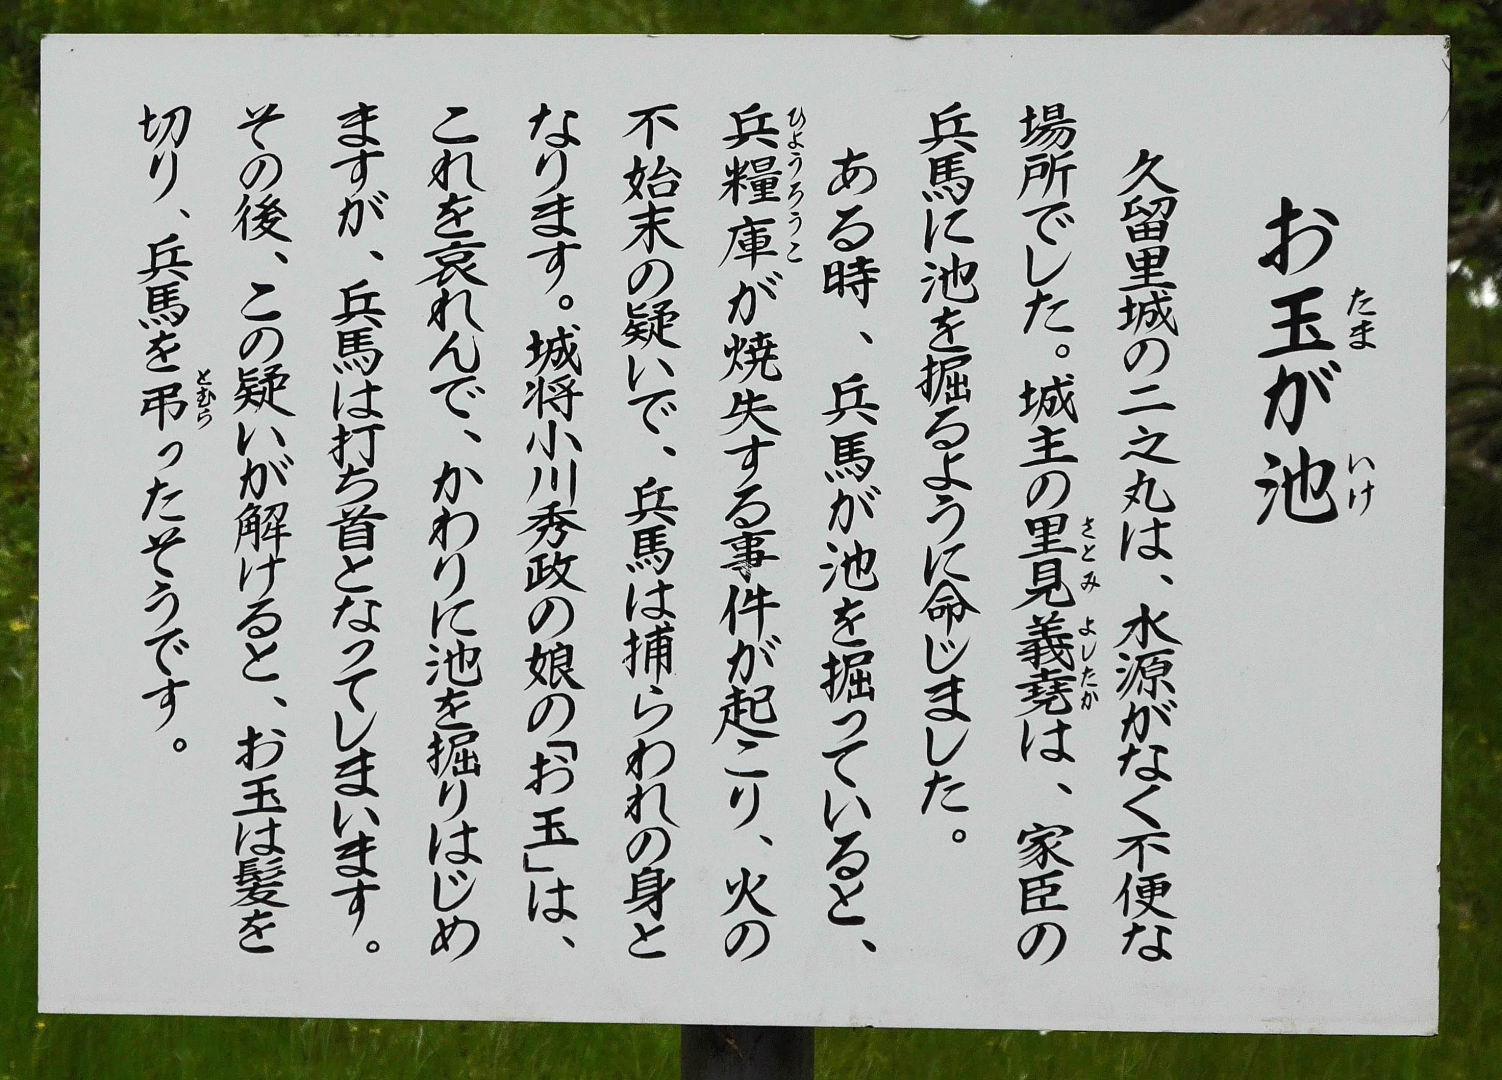 お玉が池
たま
いけ
久留里城の二之丸は、水源がなく不便な
場所でした。城主の里見義堯は、家臣の
さとみ
よしたか
兵馬に池を掘るように命じました。
ある時、兵馬が池を掘っていると、
兵糧庫が焼失する事件が起こり、火の
ひようろうこ
不始末の疑いで、兵馬は捕らわれの身と
なります。城将小川秀政の娘の「お玉」は、
これを哀れんで、かわりに池を掘りはじめ
ますが、兵馬は打ち首となってしまいます。
その後、この疑いが解けると、お玉は髪を
切り、兵馬を弔ったそうです。
とむら